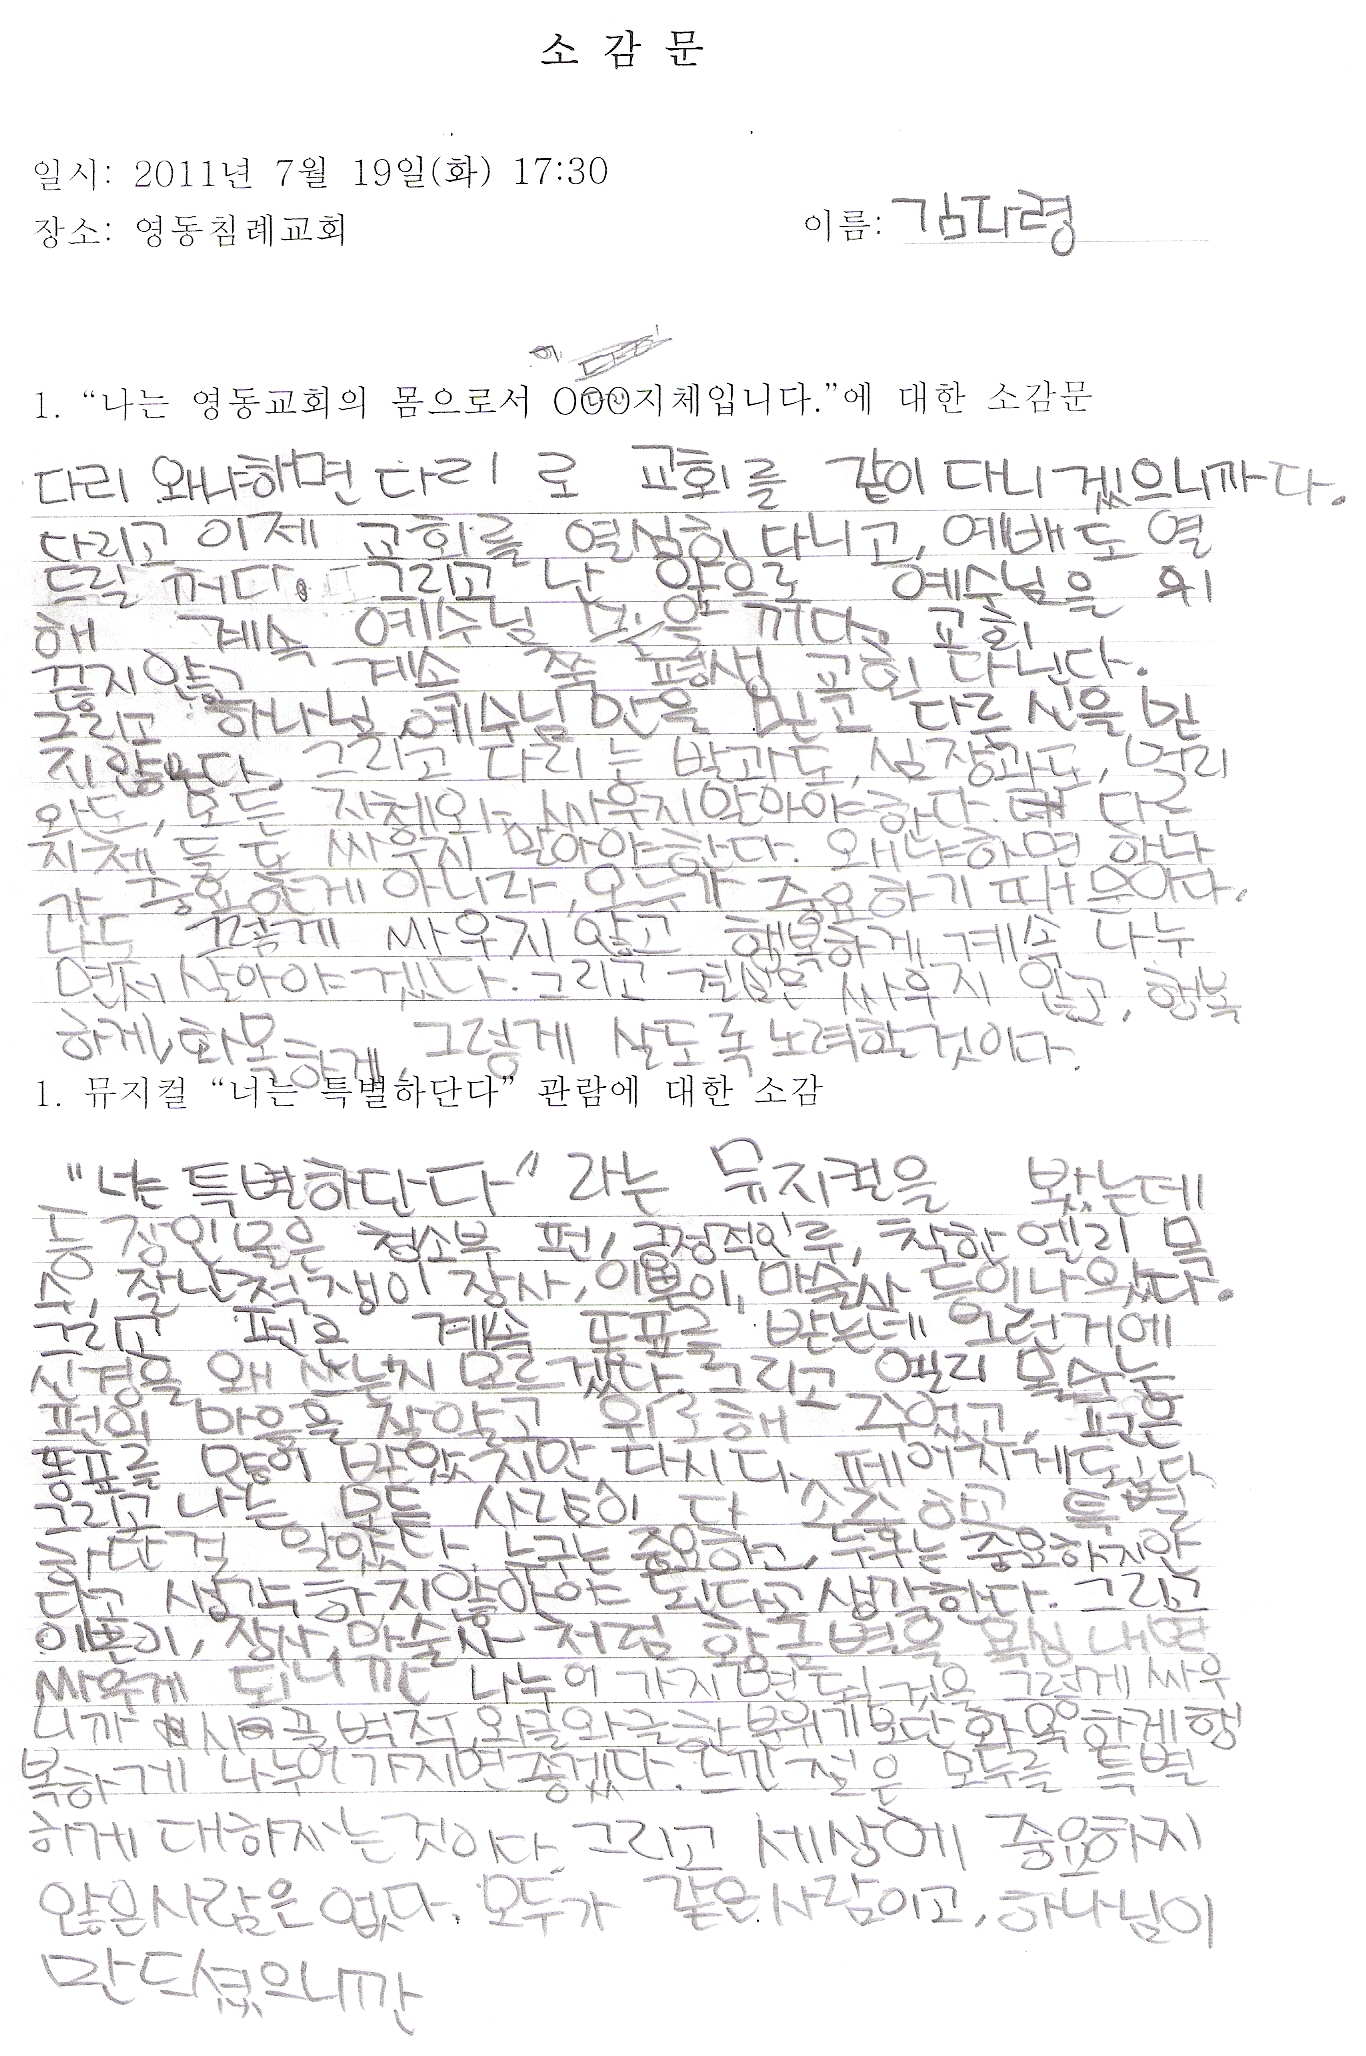 소 감 문
일시: 2011년 7월 19일(화) 17:30
장소: 영동침례교회
이름: 김다령
1. “나는 영동교회의 몸으로서 OOO지체입니다.”에 대한 소감문
다리 왜냐하면 다리 로 교회를 같이 다니겠으니까다.
그리고 이제 교회를 열심히 다니고, 예배도 열
드릴 꺼다. 그리고 난 앞으로 예수님을 위
해 계속 예수님 믿을 꺼다. 교회
끊지않고 계속 쭉 평생 교회 다닌다.
그리고 하나님, 예수님만을 믿고 다른 신을 믿
지않는다. 그리고 다리는 발과도, 심장과도, 머리
와도, 모든 지체와 싸우지말아야한다. 다른
지체들도 싸우지 말아야한다. 왜냐하면 하나
가 중요한게 아니라, 모두가 중요하기 때문이다.
나도 그렇게 싸우지 않고 행복하게 계속 나누
면서 살아야겠다. 그리고 결론은 싸우지 않고, 행복
하게, 화목하게, 그렇게 살도록노력할것이다.
1. 뮤지컬 “너는 특별하단다” 관람에 대한 소감
"너는 특별하단다" 라는 뮤지컬을 봤는데
등장인물은 청소부 펀, 긍정적인 루, 착한 엘리 목
수, 잘난척쟁이 장사, 이쁜이, 마술사 등이나왔다.
그리고 펀은 계속 똥표를 받는데 그런거에
신경을 왜 쓰는지 모르겠다. 그리고 엘리 목수는
펀의 마음을 잘알고 위로해 주었고, 펀은
똥표를 많이 받았지만, 다시 다 떼어지게도 됬다.
그리고 나는 모든 사람이 다 소중하고 특별
하단걸 알았다. 누구는 중요하고, 누구는 중요하지안
다고 생각하지않아야 된다고 생각한다. 그리고
이쁜이, 장사, 마술사 처럼 황금별을 욕심내면
싸우게 되니까 나누어 가지면 될것을 그렇게 싸우
니까 시끌벅적, 와글와글한 분위기보단 화목하게 행
복하게 나누어가지면 좋겠다. 느낀점은 모두를 특별
하게 대하자는 것이다. 그리고 세상에 중요하지
않은사람은 없다. 모두가 같은사람이고, 하나님이
만드셨으니깐